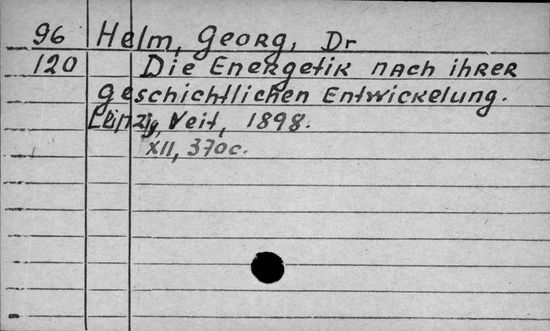 96 Helm, Georg, Dr
120 Die Energetik nach ihrer
geschichtlichen Entwickelung.
Leipzig, Veit, 1898.
XII, 370c.